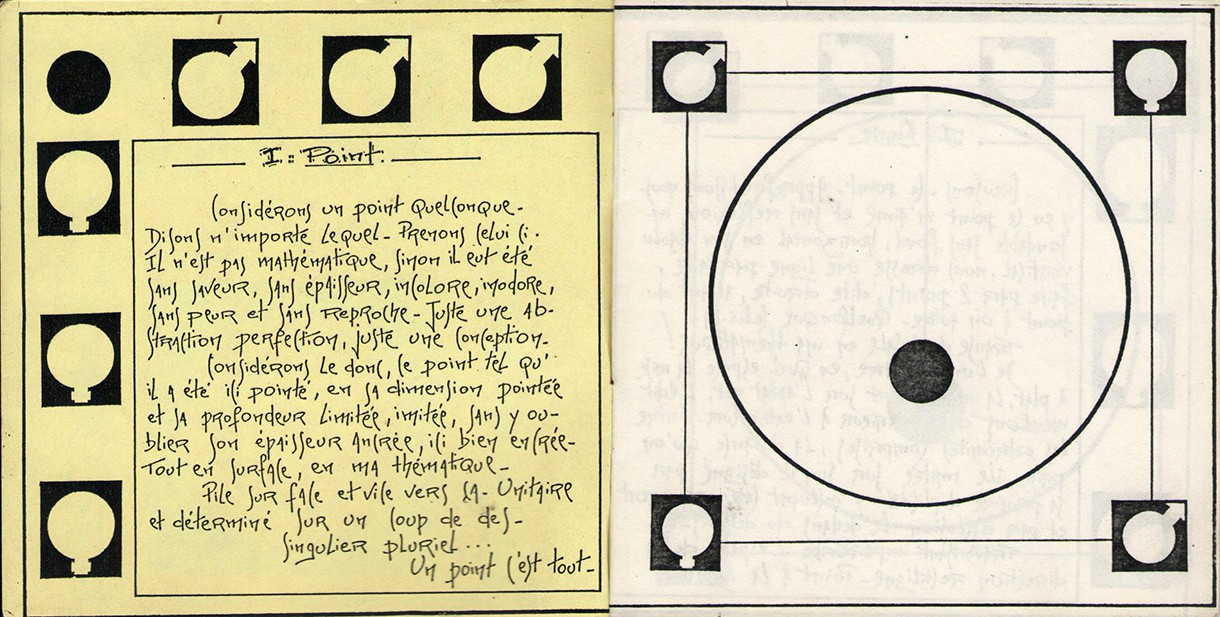 I : Point
Considérons un point quelconque.
Disons n'importe lequel. Prenons celui ci.
Il n'est pas mathématique, sinon il eut été
sans saveur, sans épaisseur, incolore, inodore,
sans peur et sans reproche. Juste une ab-
straction perfection, juste une conception.
Considérons le donc, ce point tel qu'
il a été ici pointé, en sa dimension pointée
et sa profondeur limitée, imitée, sans y ou-
blier son épaisseur ancrée, ici bien encrée.
Tout en surface, en ma thématique.
Pile sur face et vice versa. Unitaire
et déterminé sur un coup de des.
Singulier pluriel...
Un point c'est tout.